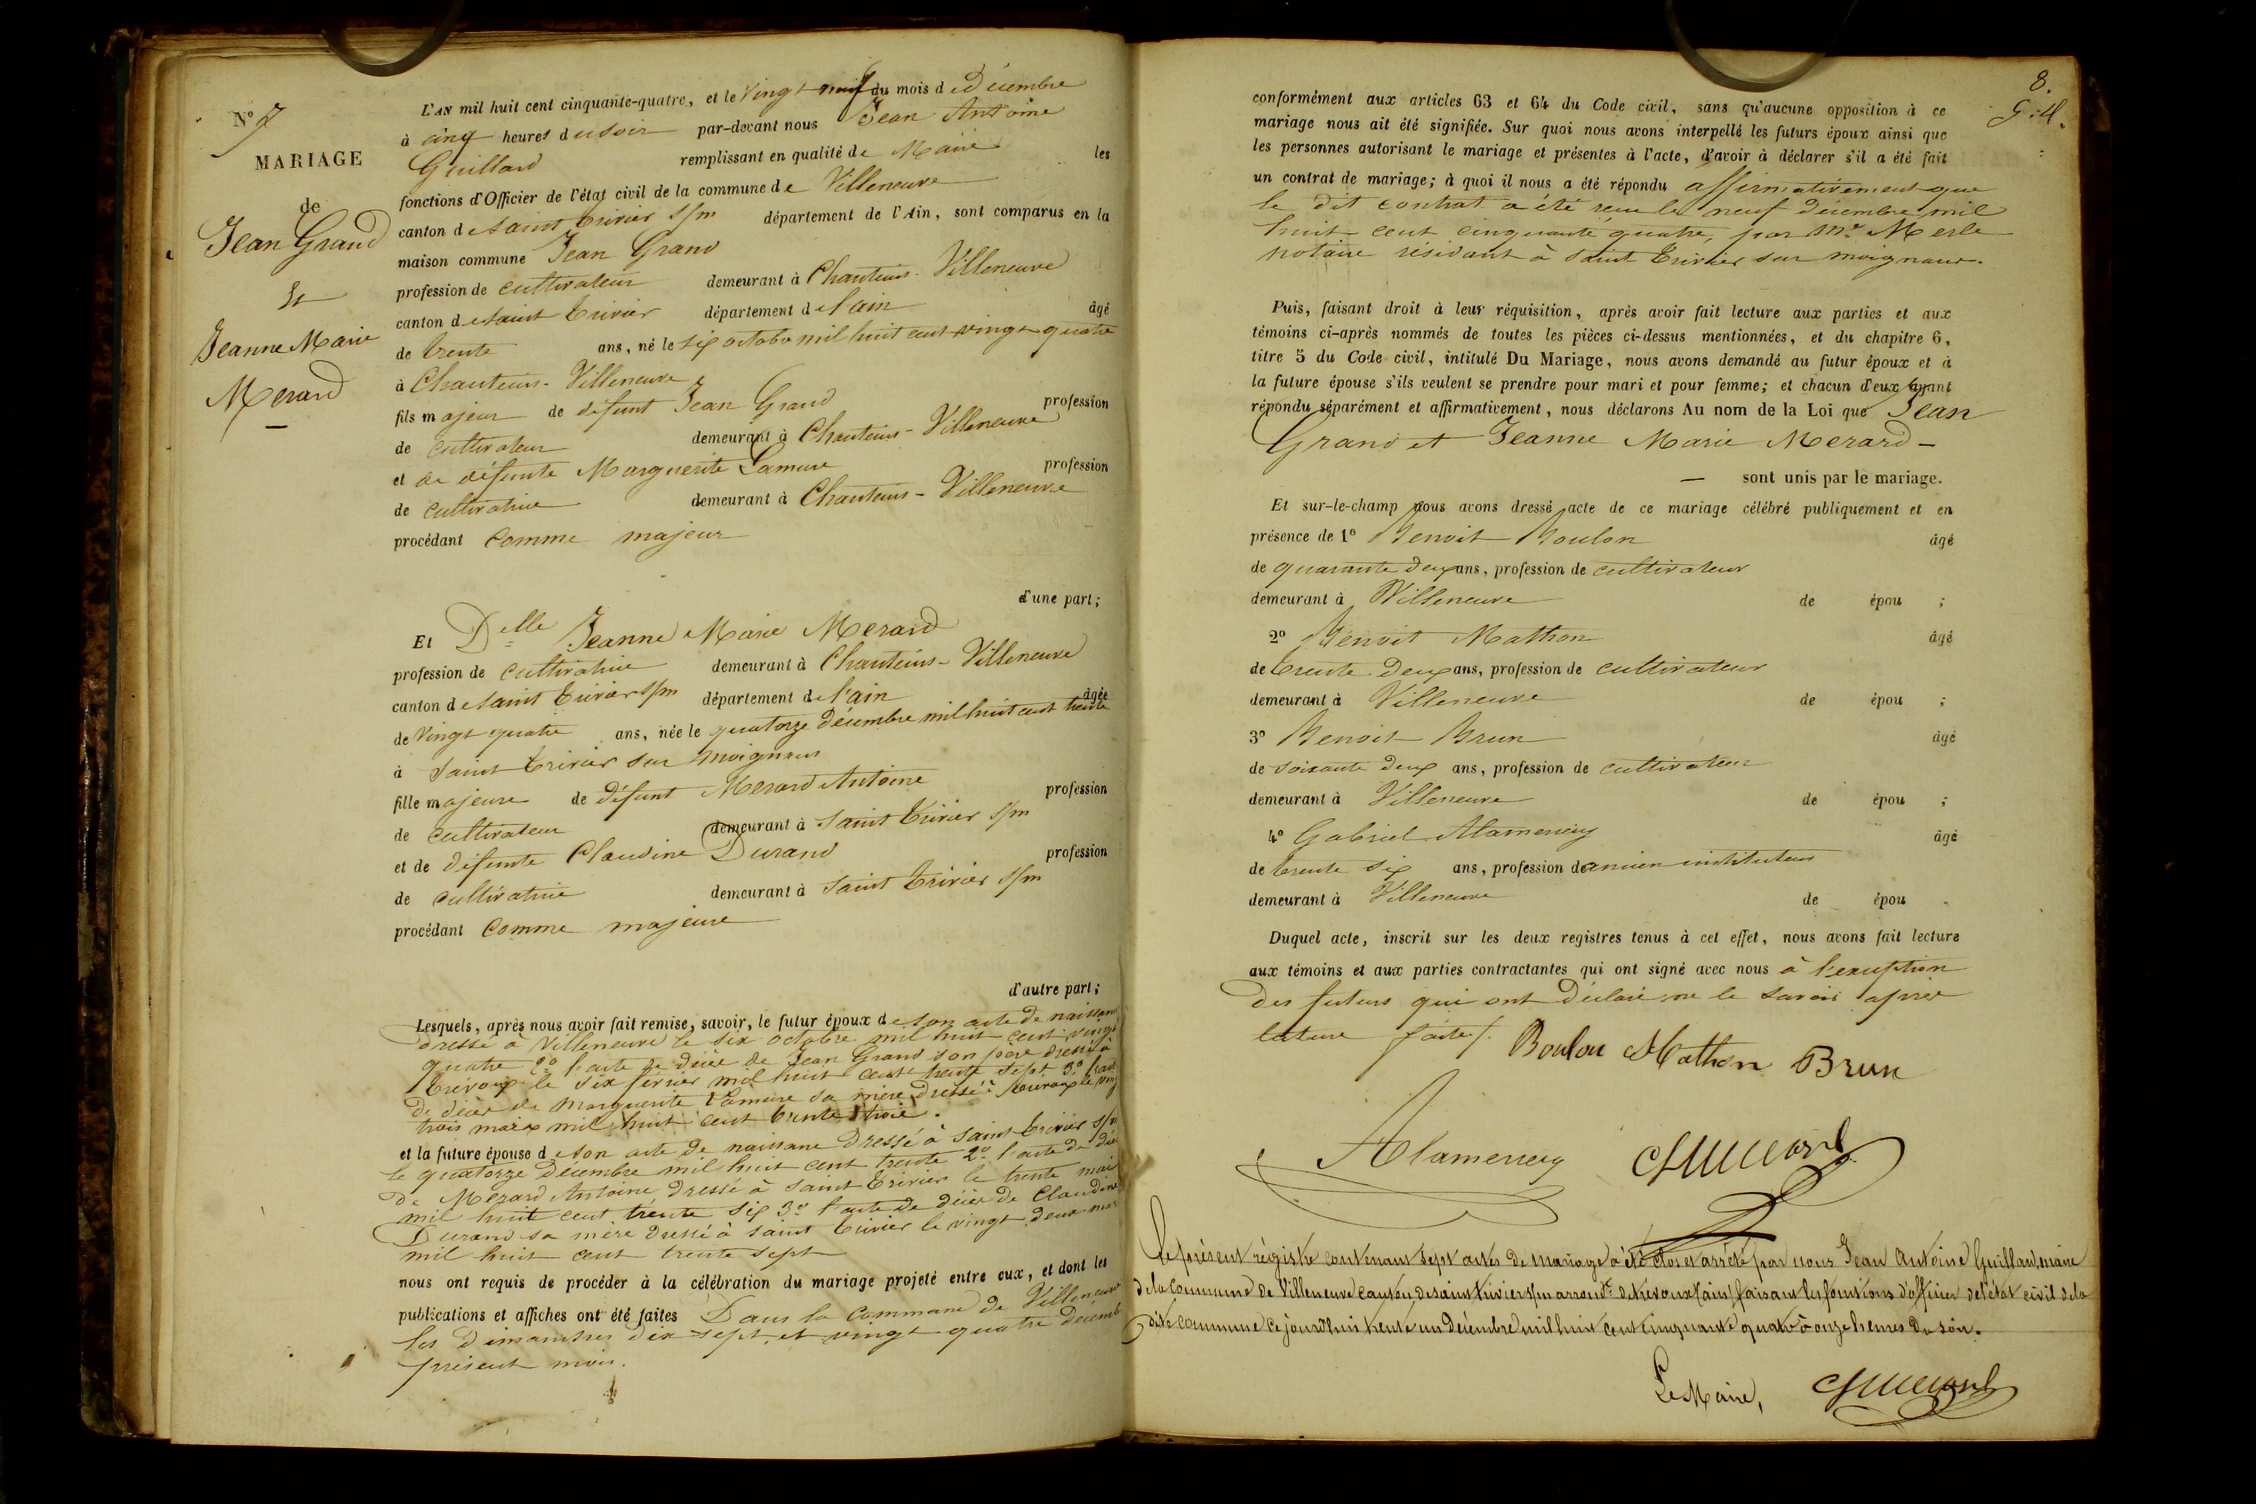 N° 7
MARIAGE
de
Jean Grand
Et
Jeanne Marie
Merard
L'AN mil huit cent cinquante-quatre, et le Vingt neuf du mois de Décembre
à cinq heures du soir par-devant nous Jean Antoine
Guillard remplissant en qualité de Maire les
fonctions d'Officier de l'état civil de la commune de Villeneuve
canton de Saint Trivier s/m département de l'Ain, sont comparus en la
maison commune Jean Grand
profession de cultivateur demeurant à Chanteins-Villeneuve
canton de Saint Trivier département de l'ain âgé
de trente ans, né le six octobre mil huit cent vingt quatre
à Chanteins-Villeneuve
fils majeur de défunt Jean Grand profession
de cultivateur demeurant à Chanteins-Villeneuve
et de défunte Marguerite Lamure profession
de cultivatrice demeurant à Chanteins-Villeneuve
procédant comme majeur
d'une part;
Et Delle Jeanne Marie Merard
profession de cultivatrice demeurant à Chanteins-Villeneuve
canton de Saint Trivier s/m département de l'ain âgée
de Vingt quatre ans, née le quatorze décembre mil huit cent trente
à Saint Trivier sur moignans
fille majeure de défunt Merard Antoine profession
de cultivateur demeurant à Saint Trivier s/m
et de défunte Claudine Durand profession
de cultivatrice demeurant à Saint Trivier s/m
procédant comme majeure
d'autre part;
Lesquels, après nous avoir fait remise, savoir, le futur époux de son acte de naissance
dressé à Villeneuve le six octobre mil huit cent vingt
quatre 2° l'acte de décès de Jean Grand son père dressé à
Trévoux le six février mil huit cent trente sept 3° l'acte
de décès de Marguerite Lamure sa mère dressé à Trévoux le vingt
trois mars mil huit cent trente trois.
et la future épouse de son acte de naissance dressé à Saint Trivier s/m
le quatorze Décembre mil huit cent trente 2° l'acte de décès
de Merard Antoine, dressé à Saint Trivier le trente mai
mil huit cent trente six 3° l'acte de décès de Claudine
Durand sa mère dressé à Saint Trivier le vingt deux
mil huit cent trente sept
nous ont requis de procéder à la célébration du mariage projeté entre eux, et dont les
publications et affiches ont été faites Dans la commune de Villeneuve
les Dimanches dix sept et vingt quatre décembre
présent mois.
8.
conformément aux articles 63 et 64 du Code civil, sans qu'aucune opposition à ce
mariage nous ait été signifiée. Sur quoi nous avons interpellé les futurs époux ainsi que
les personnes autorisant le mariage et présentes à l'acte, d'avoir à déclarer s'il a été fait
un contrat de mariage; à quoi il nous a été répondu affirmativement que
le dit contrat a été reçu le neuf décembre mil
huit cent cinquante quatre, par Me Merle
notaire résidant à Saint Trivier sur moignans.
Puis, faisant droit à leur réquisition, après avoir fait lecture aux parties et aux
témoins ci-après nommés de toutes les pièces ci-dessus mentionnées, et du chapitre 6,
titre 5 du Code civil, intitulé Du Mariage, nous avons demandé au futur époux et à
la future épouse s'ils veulent se prendre pour mari et pour femme; et chacun d'eux ayant
répondu séparément et affirmativement, nous déclarons Au nom de la Loi que Jean
Grand et Jeanne Marie Merard —
— sont unis par le mariage.
Et sur-le-champ nous avons dressé acte de ce mariage célébré publiquement et en
présence de 1° Benoit Boulon âgé
de quarante deux ans, profession de cultivateur
demeurant à Villeneuve de épou ;
2° Benoit Mathon âgé
de trente deux ans, profession de cultivateur
demeurant à Villeneuve de épou ;
3° Benoit Brun âgé
de soixante deux ans, profession de cultivateur
demeurant à Villeneuve de épou ;
4° Gabriel Alamercery âgé
de trente six ans, profession d'ancien instituteur
demeurant à Villeneuve de épou .
Duquel acte, inscrit sur les deux registres tenus à cet effet, nous avons fait lecture
aux témoins et aux parties contractantes qui ont signé avec nous à l'exception
des futurs qui ont Déclaré ne le savoir après
lecture faite/.
Boulon Mathon Brun
Alamercery Guillard
Le présent régistre contenant sept actes de mariage a été clos et arrêté par nous Jean Antoine Guillard, maire
de la commune de Villeneuve canton de saint trivier s/m arrondt de trévoux (ain) faisant les fonctions d'officier de l'état civil de la
dite commune ce jourd'hui trente un décembre mil huit cent cinquante quatre à onze heures du soir.
Le Maire, Guillard